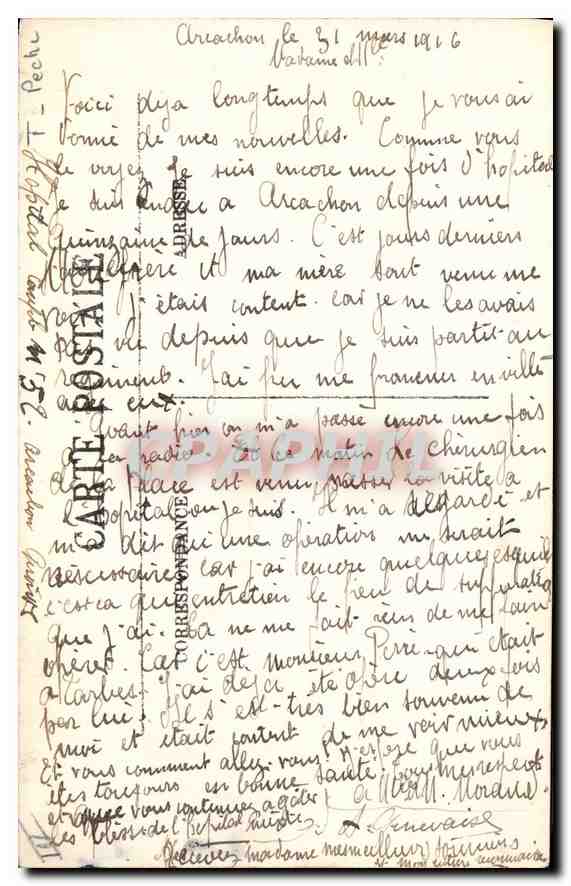 Arcachon le 31 mars 1916
Madame
Voici deja longtemps que je vous ai
donné de mes nouvelles. Comme vous
le voyez je suis encore une fois d'hopital
je suis a Arcachon depuis une
quinzaine de jours. C'est jours derniers
frère et ma mère sont venu me
voir j'étais content. Car je ne les avais
pas vu depuis que je suis partit au
regiment. J'ai pu me promener en ville
avec eux.
Avant hier on m'a passé encore une fois
a la radio. Et ce matin le chirurgien
de la place est venu passer la visite a
l'hopital ou je suis. Il m'a regardé et
m'a dit qu'une opération me serait
nescessaire. Car j'ai encore quelques esquilles
c'est ca qui entretien le peu de
que j'ai. Ca ne me fait rien de me faire
opérer. Car c'est monsieur qui était
a Tarbes. J'ai deja été opéré deux fois
par lui. Il s'est très bien souvenu de
moi et était content de me voir mieux
Et vous comment allez vous j'espère que vous
êtes toujours en bonne santé. Pour mes respects
et que vous continuez a
les blessés de l'hopital
Recevez madame mes meilleurs
T - Peche
Hopital N° 52 Arcachon
CARTE POSTALE
ADRESSE
CORRESPONDANCE
III